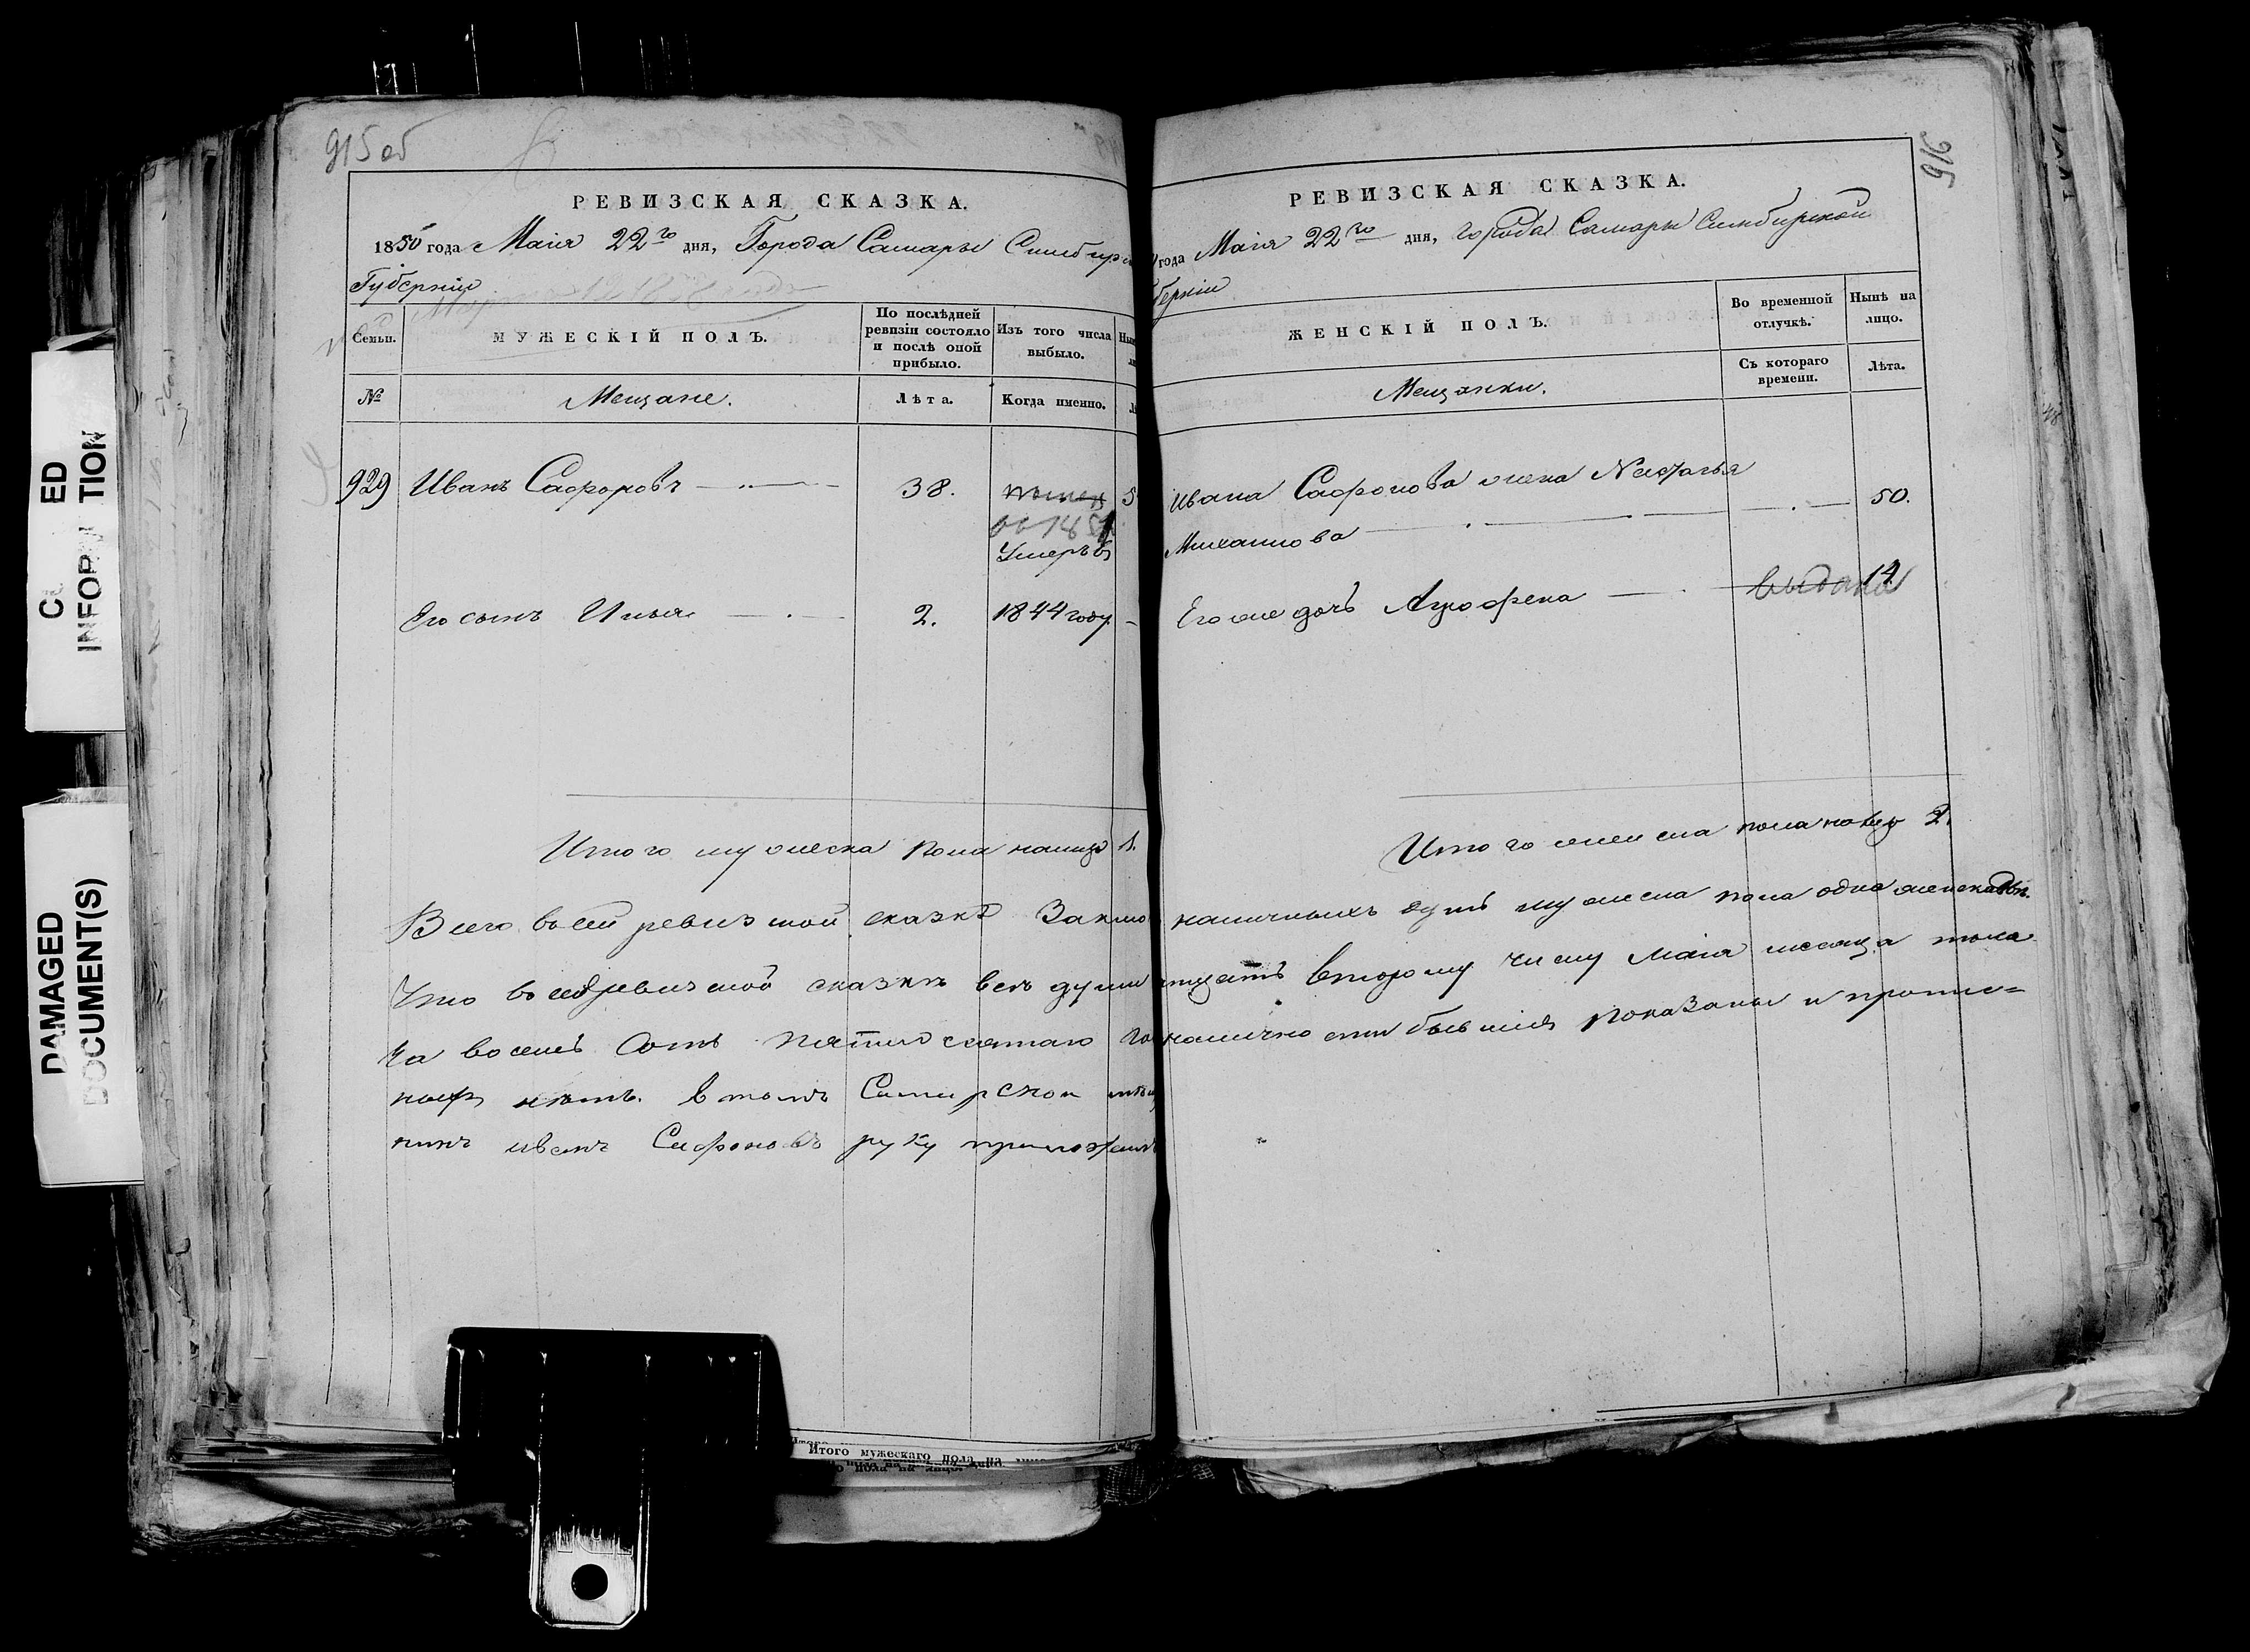 915 об
РЕВИЗСКАЯ СКАЗКА.
1850 года Маія 22го дня, Города Самары Симбирс
Губерніи
Семьи.
МУЖЕСКІЙ ПОЛЪ.
По послѣдней ревизіи состояло и послѣ оной прибыло.
Изъ того числа выбыло.
№
Мещане.
Лѣта.
Когда именно.
929 Иванъ Сафроновъ 38.
Умеръ въ
Его сынъ Илья 2. 1844 году
Итого мужеска пола налицо 1.
Всего въ сей ревизской сказкѣ Заклю
Что въ сей ревизской сказкѣ всѣ души
ча восемь Сотъ пятидесятаго го
ныхъ нѣтъ. в томъ Самарской мѣщ
нинъ иванъ Сафроновъ руку приложилъ
916
РЕВИЗСКАЯ СКАЗКА.
года Маія 22го дня, города Самары Симбирской
берніи
ЖЕНСКІЙ ПОЛЪ.
Во временной отлучкѣ.
Нынѣ на лицо.
Мещанки.
Съ котораго времени.
Лѣта.
Ивана Сафронова жена Настасья
Михаилова 50.
Его же дочь Аграфена выдана 14
Итого женска пола налицо 2.
наличныхъ душъ мужеска пола одна женска двѣ.
дцать второму числу Маія месяца тыся
налично сти бывшия показаны и пропис=
DAMAGED
DOCUMENT(S)
Итого мужескаго пола на лицо